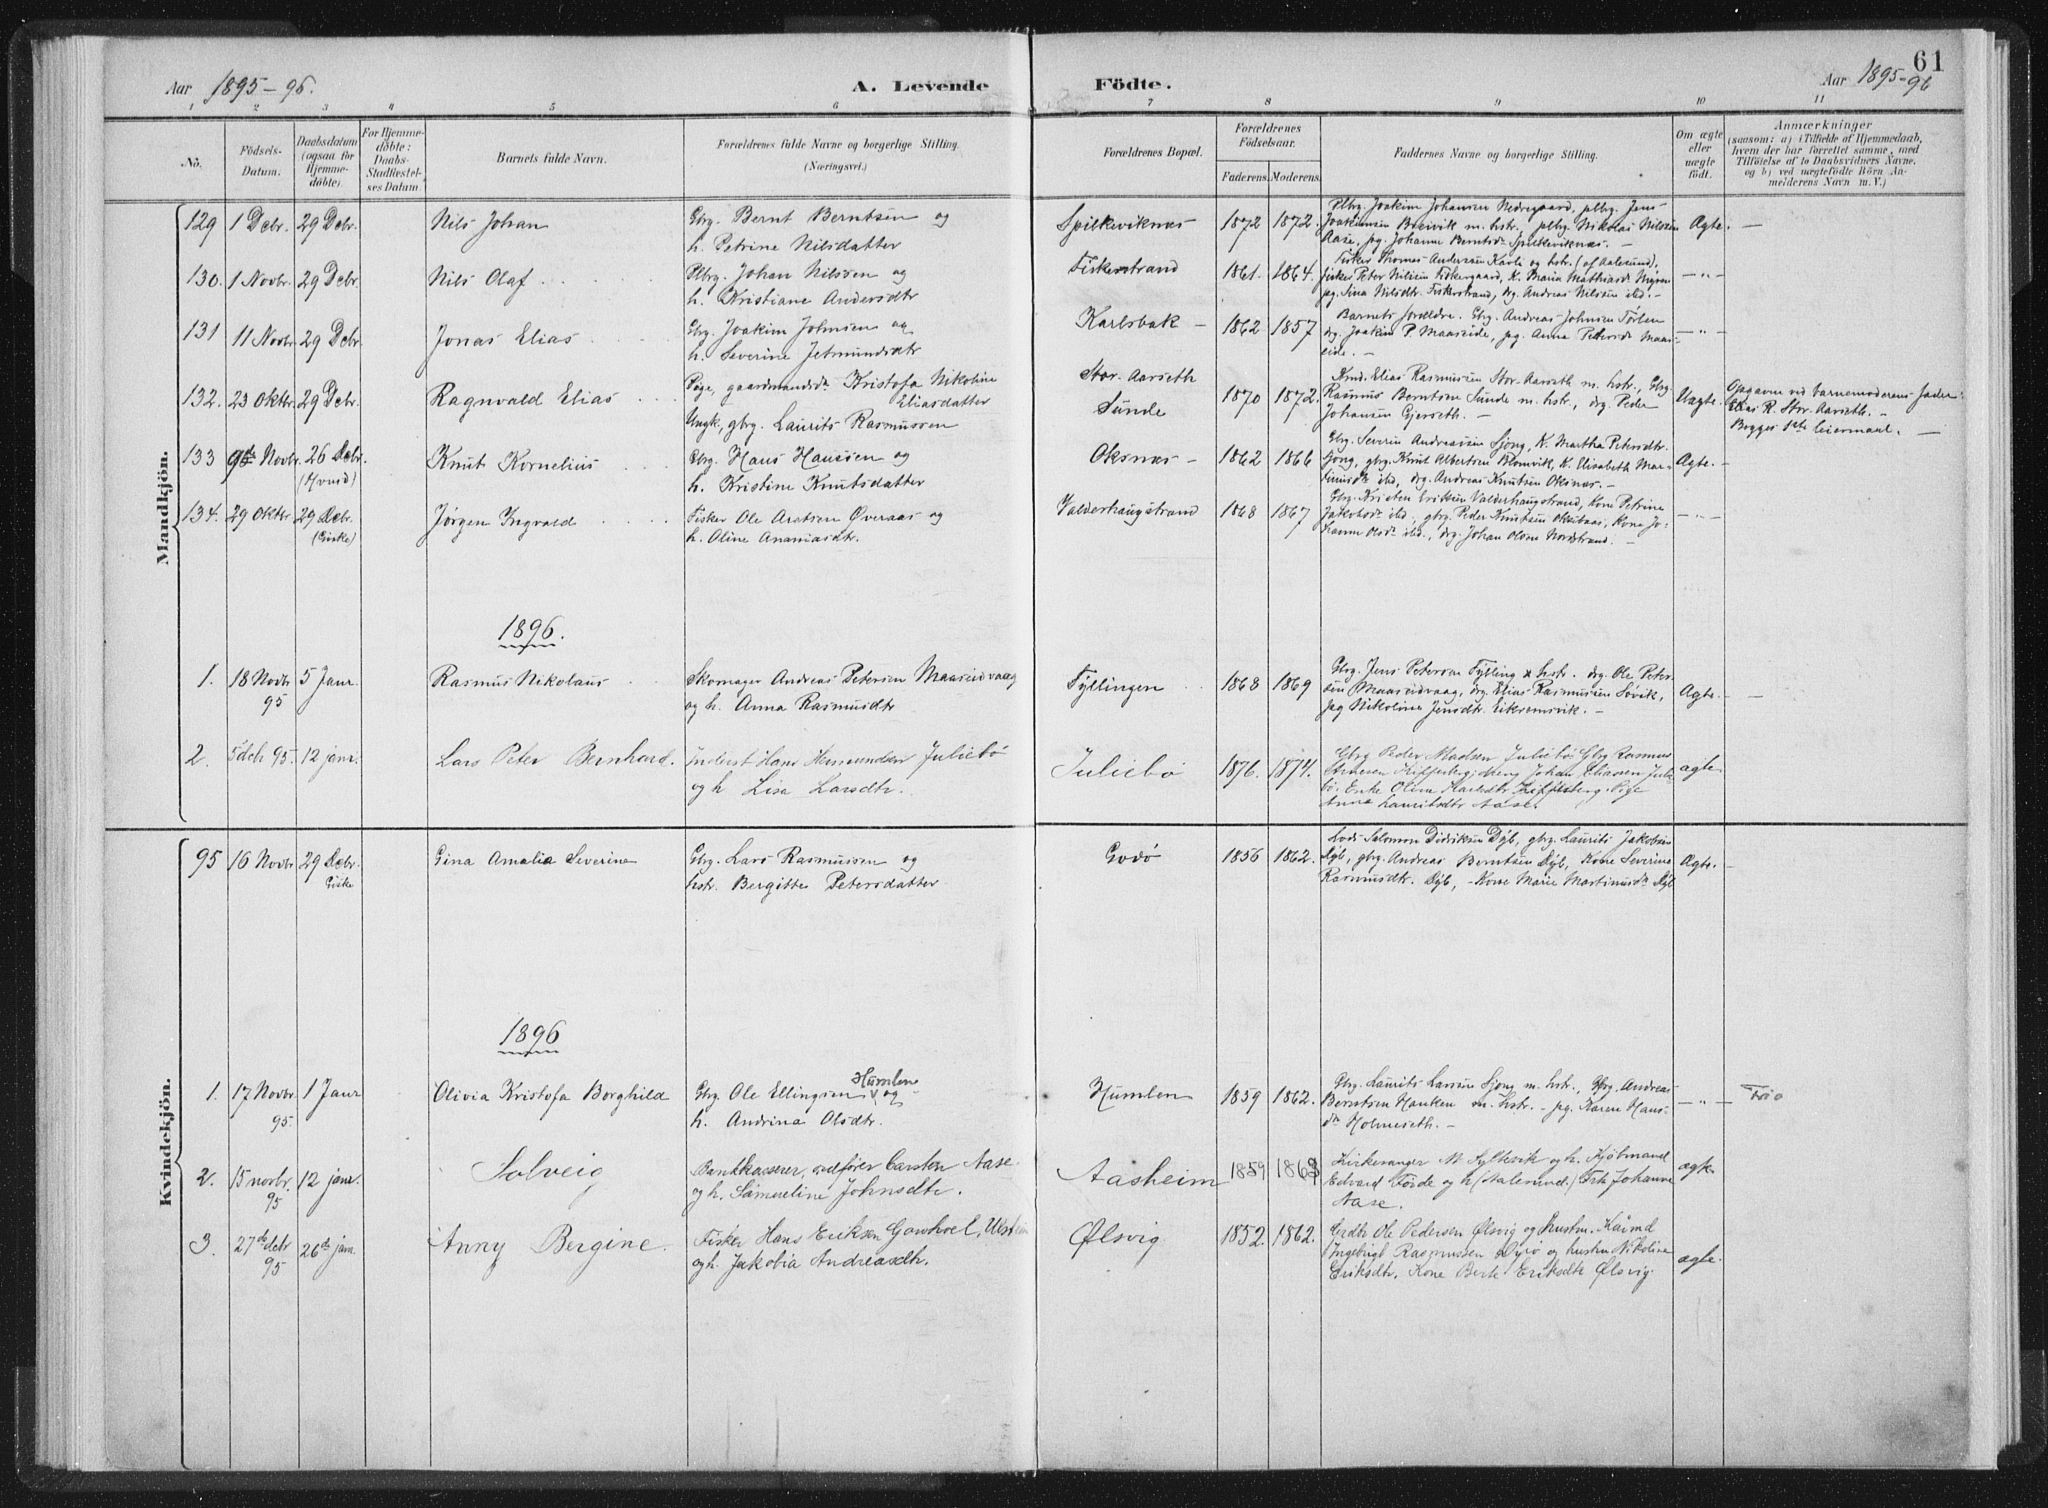 Aar 1895-96. A. Levende Födte. Aar 1895-96
61
1 2 3 4 5 6 7 8 9 10 11
No.
Födsels-Datum.
Daabsdatum (ogsaa for Hjemmedöbte).
For Hjemmedöbte: Daabs-Stadfæstelses Datum.
Barnets fulde Navn.
Forældrenes fulde Navne og borgerlige Stilling.
(Næringsvei.)
Forældrenes Bopæl.
Forældrenes Födselsaar.
Faderens. Moderens.
Faddernes Navne og borgerlige Stilling.
Om ægte eller uægte födt.
Anmærkninger
(saasom: a) i Tilfælde af Hjemmedaab, hvem der har forrettet samme, med Tilföielse af to Daabsvidners Navne, og b) ved uægtefödte Börn Anmelderens Navn m. V.)
Mandkjön.
129 1 Debr. 29 Debr. Nils Johan Gbrg. Bernt Berntsen og
h. Petrine Nilsdatter
Spilkeviknæs 1872 1872. Plbrg. Joakim Johansen Nedregaard, plbrg. Jens
Joakimsen Breivik m. hstr. plbrg. Nikolas Nilsen
Aase, pg. Johanne Berntsdr Spilkeviknæs. — Ægte. —
130. 1 Novbr. 29 Debr. Nils Olaf Plbrg. Johan Nilssen og
h. Kristiane Andersdtr
Fiskerstrand 1861. 1864. Fisker Thomas Andersen Kavle og hstr. (af Aalesund),
fisker Peter Nilsen Fiskergaard, K. Maria Matthiasdr Myren
pg. Sina Nilsdtr. Fiskerstrand, drg. Andreas Nilsen ibd. — — " —
131 11 Novbr. 29 Debr. Jonas Elias Gbrg. Joakim Johnsen og
h. Severine Jetmundsdtr
Karlsbak — 1862 1857 Barnets forældre. Gbrg. Andreas Johnsen Törlen
drg. Joakim P. Maaseide, pg. Anna Petersdr Maaseide. — — " —
132. 23 Oktbr. 29 Debr. Ragnvald Elias Pige, gaardmandsdr Kristofa Nikoline
Eliasdatter
Ungk, gbrg. Laurits Rasmussen
Stor-Aarseth
Sunde 1870 1872. Kmd. Elias Rasmussen Stor-Aarseth m. hstr., Gbrg.
Rasmus Berntsen Sunde m. hstr., drg. Peder
Johansen Gjerseth. — Uægte. Opgaven ved barnemoderens fader:
Elias R. Stor-Aarseth. —
Begges 1ste leiermaal. —
133 9de Novbr. 26 Debr. Knut Kornelius Gbrg. Hans Hanssen og
h. Kristine Knutsdatter
Oksnæs — 1862 1866 Gbrg. Severin Andreassen Sjong, K. Martha Petersdtr.
Sjong, gbrg. Knut Albertsen Blomvik, K. Elisabeth Martinusdr ibd, drg. Andreas Knutsen Oksnæs. — Ægte. —
134. 29 Oktbr 29 Debr. (Giske) Jørgen Ingvald Fisker Ole Aratsen Øveraas og
h. Oline Ananiasdtr.
Valderhaugstrand 1868 1867 Gbrg. Kristen Eriksen Valderhaugstrand, Kone Petrine
Jakobsdr ibd, gbrg. Peder Knutsen Oksbaas, Kone Johanne Olsdr ibd., drg. Johan Olsen Nordstrand. — — " —
1896.
1. 18 Novbr 95 5 Janr. Rasmus Nikolaus Skomager Andreas Petersen Maaseidvaag
og h. Anna Rasmusdtr
Fyllingen 1868 1869 Gbrg. Jens Peterson Fylling & hstr. drg. Ole Petersen Maaseidvaag, drg. Elias Rasmussen Søvik,
Pg Nikoline Jensdtr. Eikremsvik. — Ægte. —
2. 5 dcb 95. 12 janr. Lars Peter Bernhard. Inderst Hans Hemundsen Juliebø
og h Lisa Larsdtr.
Juliebø 1876. 1874. Gbrg Peder Madsen Juliebø Gbrg Rasmus
Johan Eliasen Juliebø. Enke Olina Pige
Anna Lauritsdtr Aase. ægte
Kvindekjön.
95 16 Novbr 29 Debr. Giske Gina Amalia Severine Gbrg. Lars Rasmussen og
hstr. Bergitte Petersdatter
Godø 1856 1862. Lods Salomon Didriksen Dyb, gbrg. Laurits Jakobsen
Dyb, gbrg. Andreas Berntsen Dyb, Kone Severine
Rasmusdtr. Dyb, — Kone Marie Martinusdr Dyb Ægte. —
1896
1. 17 Novbr. 95. 1 Janr Olivia Kristofa Borghild Gbrg. Ole Ellingsen Humlen og
h. Andrina Olsdtr.
Humlen 1859 1862. Gbrg. Laurits Larsen Sjong m. hstr., Gbrg. Andreas
Berntsen Hanken m. hstr. — pg. Karen Hansdr Holmeseth. — — " —
2. 15 novbr. 95 12 janr. Solveig Bankkasserer, sagfører Carsten Aase
og h. Sämueline Johnsdtr.
Aasheim 1859 1868 Kirkesanger M Sylteвik og h. Kjøbmand
Edvard Førde og h (Aalesund.) Frk Johanne
Aase. ægte
3. 27de dcbr 95 26de janr. Anny Bergine. Fisker Hans Eriksen
og h. Jakobia Andreasdtr.
Ølsvig 1852. 1862. Grdbr Ole Pedersen Ølsvig og hustru. Kårmd
Ingebrigt Rasmussen og hustru Nikoline
Eriksdtr. Kone Berte Eriksdtr Ølsvig. ægte.